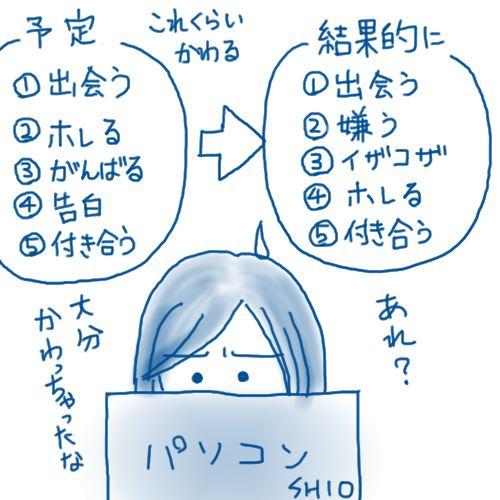 予定
①出会う
②ホレる
③がんばる
④告白
⑤付き合う
これくらい
かわる
結果的に
①出会う
②嫌う
③イザコザ
④ホレる
⑤付き合う
大分
かわっちゃったな
あれ?
パソコン
SHIO